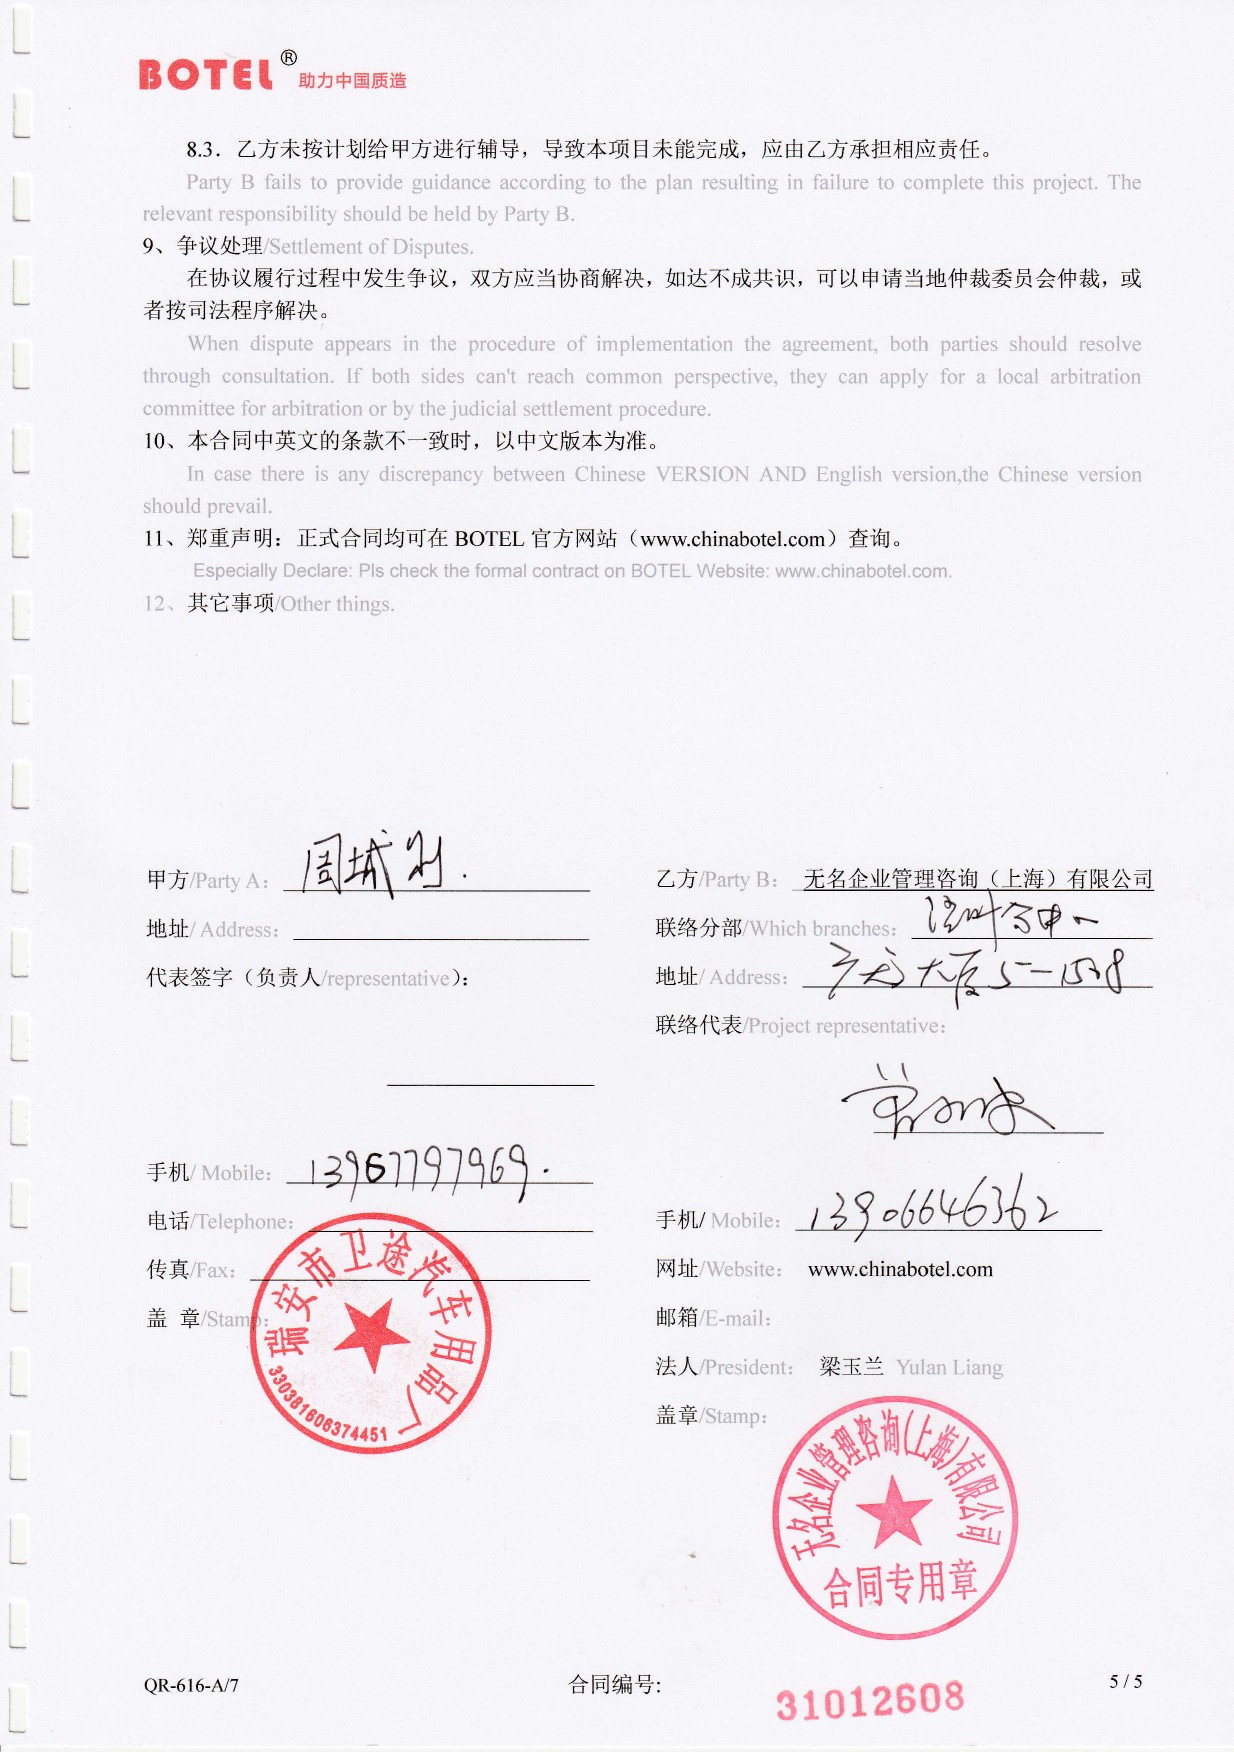 BOTEL® 助力中国质造
8.3．乙方未按计划给甲方进行辅导，导致本项目未能完成，应由乙方承担相应责任。
Party B fails to provide guidance according to the plan resulting in failure to complete this project. The
relevant responsibility should be held by Party B.
9、争议处理/Settlement of Disputes.
在协议履行过程中发生争议，双方应当协商解决，如达不成共识，可以申请当地仲裁委员会仲裁，或
者按司法程序解决。
When dispute appears in the procedure of implementation the agreement, both parties should resolve
through consultation. If both sides can't reach common perspective, they can apply for a local arbitration
committee for arbitration or by the judicial settlement procedure.
10、本合同中英文的条款不一致时，以中文版本为准。
In case there is any discrepancy between Chinese VERSION AND English version,the Chinese version
should prevail.
11、郑重声明：正式合同均可在 BOTEL 官方网站（www.chinabotel.com）查询。
Especially Declare: Pls check the formal contract on BOTEL Website: www.chinabotel.com.
12、其它事项/Other things.
甲方/Party A：
地址/ Address：
代表签字（负责人/representative）：
手机/ Mobile： 13967797969.
电话/Telephone：
传真/Fax：
盖 章/Stamp：
瑞安市卫途汽车用品厂
330381606374451
乙方/Party B： 无名企业管理咨询（上海）有限公司
联络分部/Which branches：
地址/ Address： 大厦5-1508
联络代表/Project representative：
手机/ Mobile： 13906646362
网址/Website： www.chinabotel.com
邮箱/E-mail：
法人/President： 梁玉兰 Yulan Liang
盖章/Stamp：
无名企业管理咨询(上海)有限公司
合同专用章
QR-616-A/7
合同编号:
31012608
5 / 5